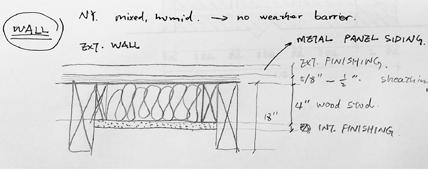 WALL
NY. mixed, humid. → no weather barrier.
EXT. WALL
METAL PANEL SIDING.
EXT. FINISHING.
5/8" - 1/2" sheathin
4" wood stud.
18"
INT. FINISHING